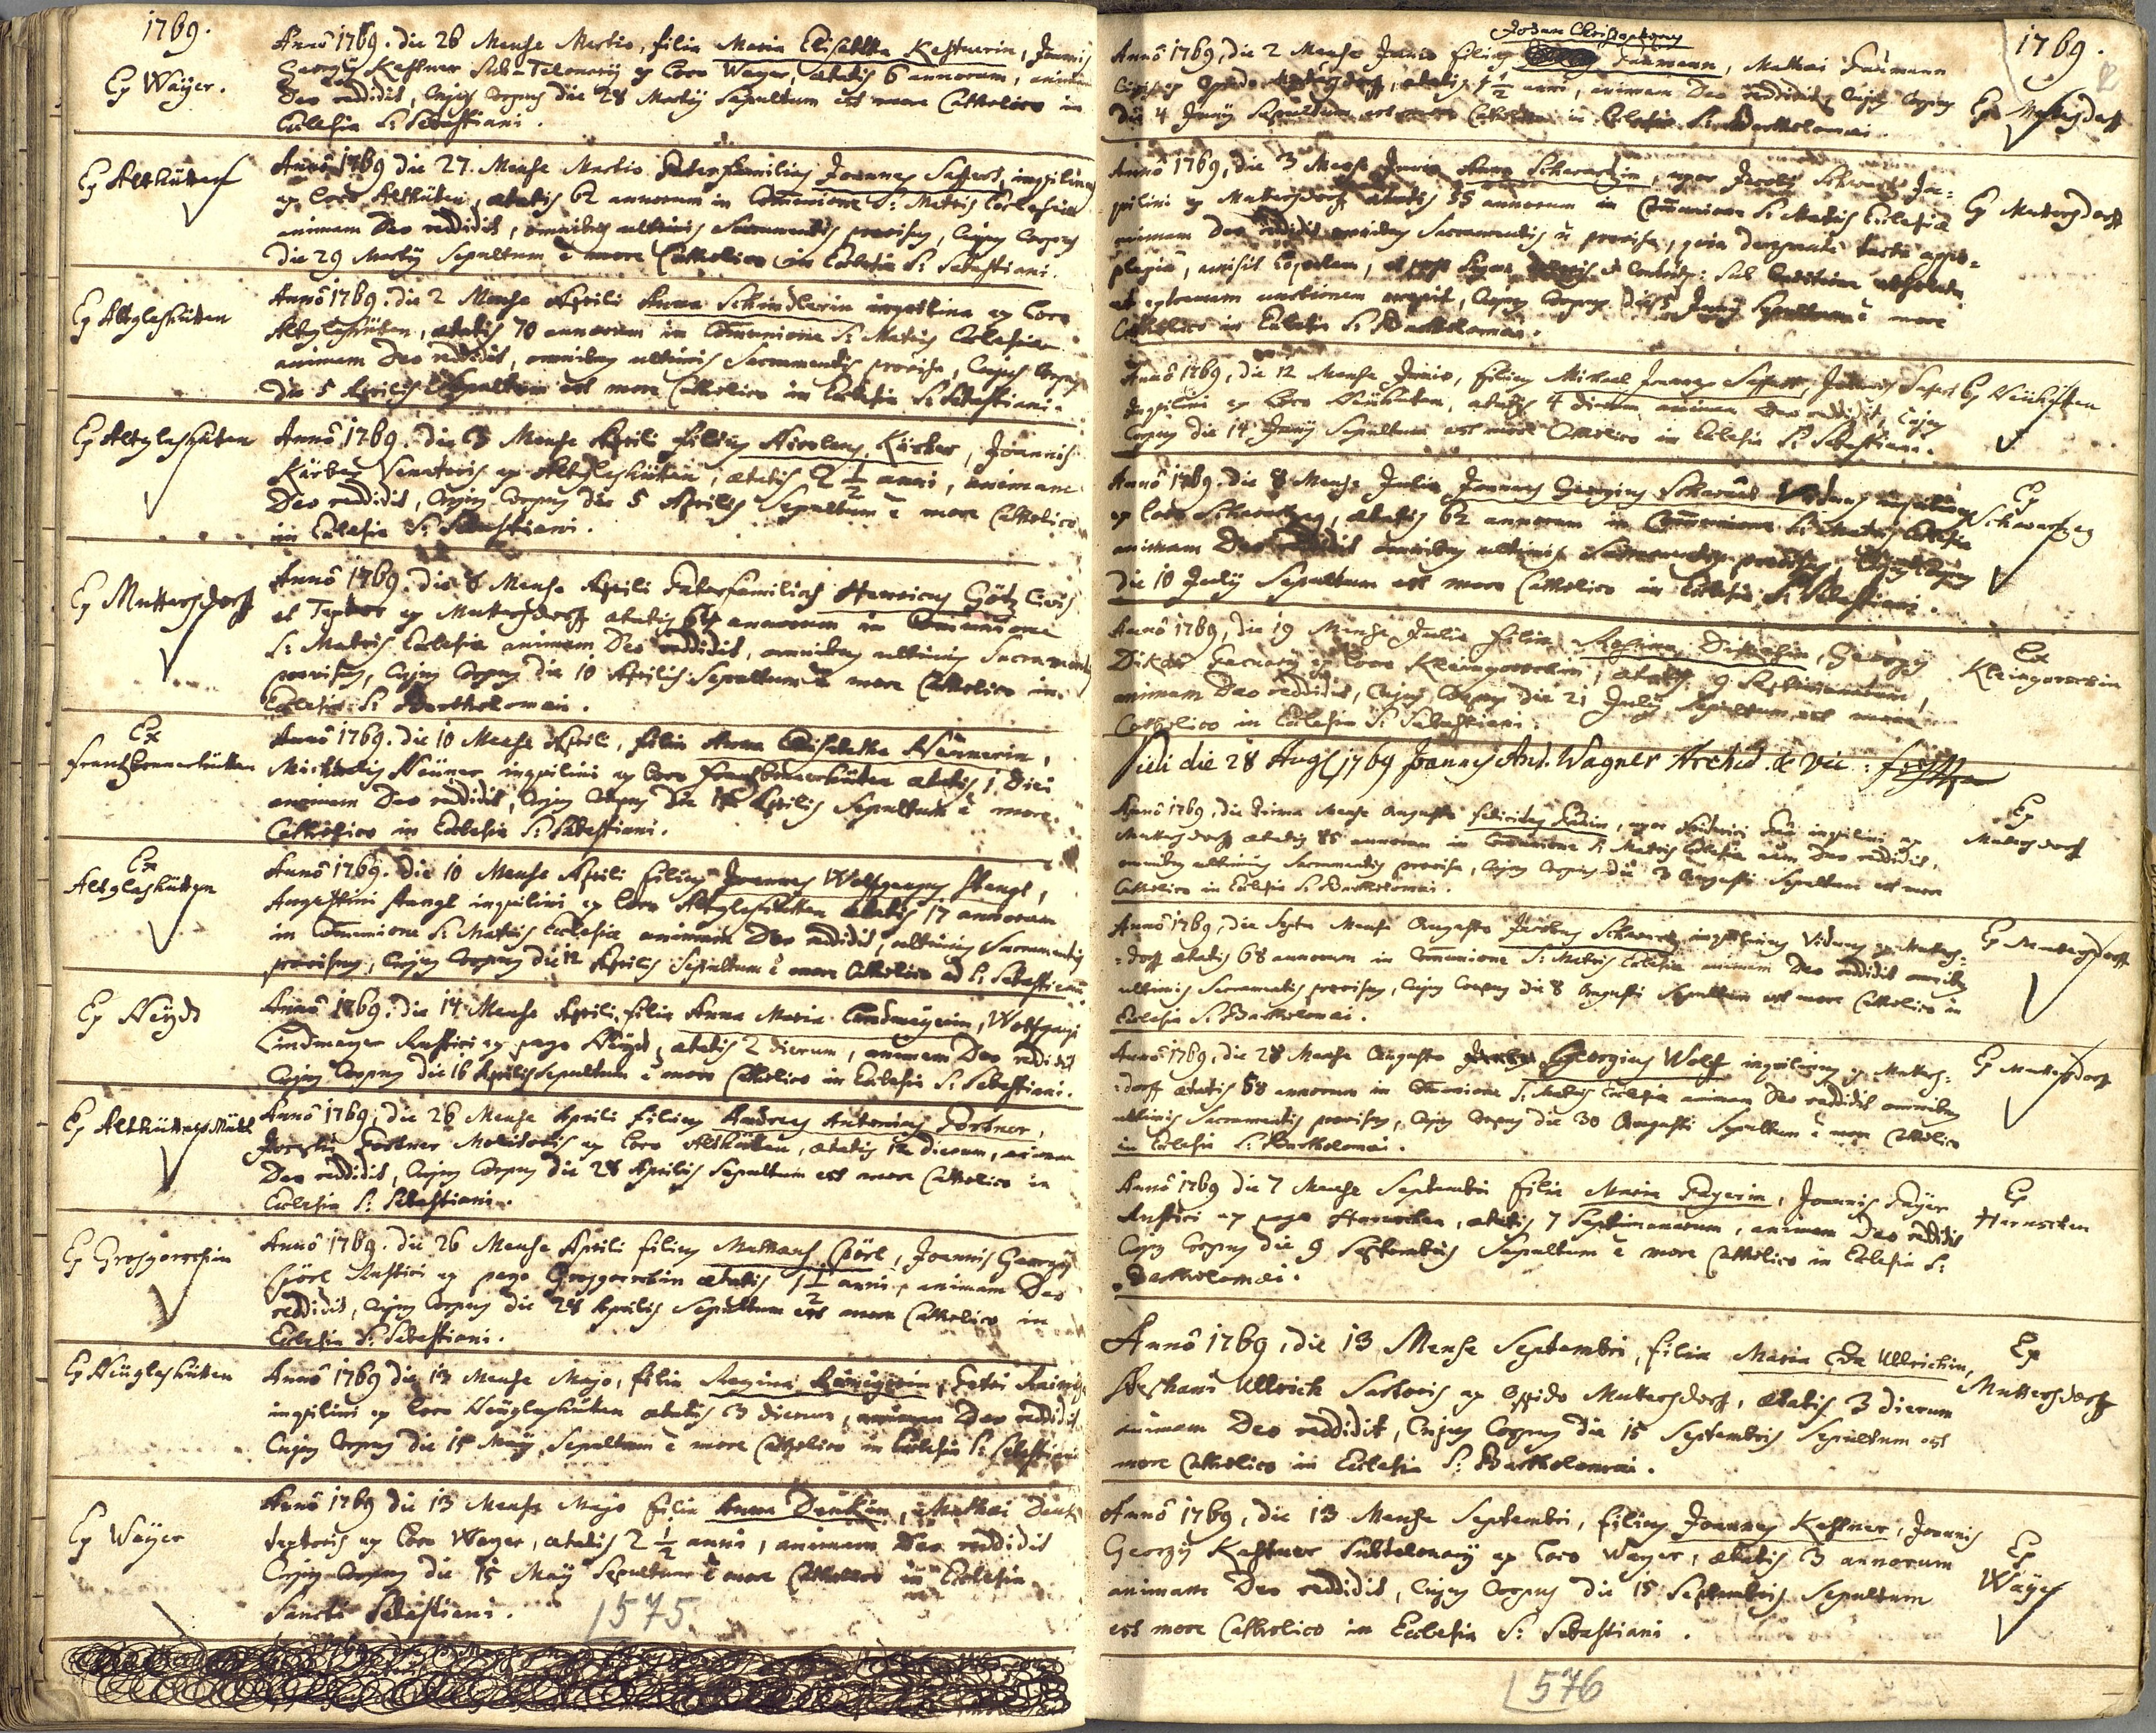 1769.
Ex Waÿer.
Annô 1769. die 26 Mense Martio, filia Maria Elisabetha Kestnerin, Joannis
Georgÿ Kestner Sub-Telonarÿ ex Loco Wayer, ætatis 6 annorum, animam
Deo reddidit, Cujus Corpus die 28 Martÿ Sepultum est more Catholico in
Ecclesia S: Sebastiani.
Ex Althütten
Annô 1769 die 27. Mense Martio Paterfamilias Joannes Saffert, inquilinus
ex Loco Althüten, ætatis 62 annorum in Com̄unione S: Matris Ecclesiæ
animam Deo reddidit, omnibus ultimis Sacramentis provisus, Cujus Corpus
die 29 Martÿ Sepultum ē more Catholico in Ecclesia S: Sebastiani.
Ex Altglashütten
Annô 1769. die 2 Mense Aprili Anna Schindlerin inquilina ex Loco
Altglashüten, ætatis 70 annorum in Com̄unione S: Matris Ecclesiæ
animam Deo reddidit, omnibus ultimis Sacramentis provisa, Cujus Corpus
die 5 Aprilis Sepultum est more Catholico in Ecclesia S: Sebastiani.
Ex Altglashüten
Annô 1769. die 3 Mense Aprili filius Nicolaus Kürber, Joannis
Kürber Venatoris ex Altglashütten, ætatis 2 1/2 anni, animam
Deo reddidit, Cujus Corpus die 5 Aprilis Sepultum ē more Catholico
in Ecclesia S: Sebastiani.
Ex Muttersdorff
Annô 1769. die 8 Mense Aprili Paterfamilias Henricus Götz Civis
et Textor ex Muttersdorff ætatis 64 annorum in Com̄unione
S: Matris Ecclesiæ animam Deo reddidit, omnibus ultimis Sacramentis
provisus, Cujus Corpus die 10 Aprilis Sepultum ē more Catholico in
Ecclesia S: Bartholomæi.
Ex
Frantzbrunerhütten
Annô 1769. die 10 Mense Aprili, filia Anna Elisabetha Neünerin,
Michaelis Neüner inquilini ex Loco Frantzbrunerhüten ætatis 1 diei
animam Deo reddidit, Cujus Corpus die Aprilis Sepultum ē more
Catholico in Ecclesia S: Sebastiani.
Ex
Altglashütten
Annô 1769. die 10 Mense Aprili filius Joannes Wolfgangus Stangl,
Augustini Stangl inquilini ex Loco Altglashütten ætatis 17 annorum
in Com̄unione S: Matris Ecclesiæ animam Deo reddidit, ultimis Sacramentis
provisus, Cujus Corpus die 12 Aprilis Sepultum ē more Catholico ad S: Sebastianū
Ex Heÿdt
Annô 1769. die 14 Mense Aprili, filia Anna Maria Lindmeyerin, Wolfgangi
Lindmeyer Rustici ex pago Heÿdt, ætatis 2 dierum, animam Deo reddidit
Cujus Corpus die 16 Aprilis Sepultum ē more Catholico in Ecclesia S: Sebastiani.
Ex Althüttner Mühl
Annô 1769. die 26 Mense Aprili filius Andreas Antonius Fortner,
Fortner Molitoris ex Loco Althütten, ætatis 12 dierum, animam
Deo reddidit, Cujus Corpus die 28 Aprilis Sepultum est more Catholico in
Ecclesia S: Sebastiani.
Ex Grosgorschin
Annô 1769. die 26 Mense Aprili filius Mathæus Spörl, Joannis Georgÿ
Spörl Rustici ex pago Grosgorschin ætatis 1 1/2 anni, animam Deo
reddidit, Cujus Corpus die 28 Aprilis Sepultum est more Catholico in
Ecclesia S: Sebastiani.
Ex Neüglashütten
Annô 1769 die 13 Mense Majo, filia Regina Reinigerin, Petri
inquilini ex Loco Neüglashütten ætatis 3 dierum, animam Deo reddidit
Cujus Corpus die 15 Maÿ Sepultum ē more Catholico in Ecclesia S: Sebastiani
Ex Waÿer
Annô 1769 die 13 Mense Majo filia Anna Denkin, Mathæi Denk
textoris ex Loco Wayer, ætatis 2 1/2 anni, animam Deo reddidit
Cujus Corpus die 15 Maÿ Sepultum ē more Catholico in Ecclesia
Sancti Sebastiani.
575.
1769.
Johann Christophorus
Annô 1769, die 2 Mense Junio filius Faumann, Mathæi Faumann
Civis ex Oppido Muttersdorff, ætatis 1 1/2 anni, animam Deo reddidit, Cujus Corpus
die 4 Junÿ Sepultum est more Catholico in Ecclesia S: Bartholomæi.
Ex Muttersdorff
Annô 1769, die 3 Mense Junio Anna Schwartzin, uxor Jacobi Schwartz In=
quilini ex Muttersdorff ætatis 55 annorum in Com̄unione S: Matris Ecclesiæ
animam Deo reddidit omnibus Sacramentis ñ provisa, quia derepente tacta appo=
plexia, amisit Loquelam, absoluta
et extremam unctionem accepit, Cujus Corpus die 5 Junÿ Sepultum ē more
Catholico in Ecclesia S: Bartholomæi.
Ex Muttersdorff
Annô 1769, die 12 Mense Junio, filius Michael Joannes Saffert, Joannis Safert
Inquilini ex Loco Neühüten, ætatis 4 dierum animam Deo reddidit, Cujus
Corpus die 14 Junÿ Sepultum est more Catholico in Ecclesia S: Sebastiani.
Ex Neühütten
Annô 1769. die 8 Mense Julio Joannes Georgius Viduus inquilinus
ex Loco Schwartzag, ætatis 62 annorum in Com̄unione S: Matris Ecclesiæ
animam Deo reddidit omnibus ultimis Sacramentis provisus, Cujus Corpus
die 10 Julÿ Sepultum est more Catholico in Ecclesia S: Sebastiani.
Ex
Schwartzag
Annô 1769, die 19 Mense Julio filia Rosina, Georgÿ
ex Loco Kleingorschin, ætatis 9 Septimanarum,
animam Deo reddidit, Cujus Corpus die 21 Julÿ Sepultum est more
Catholico in Ecclesia S: Sebastiani.
Ex
Kleingorschin
Vidi die 28 Aug 1769 Joannes Ant. Wagner Archid. & Vic:
Annô 1769, die prima Mense Augusto Felicitas, uxor inquilini ex
Muttersdorff ætatis 85 annorum in Com̄unione S: Matris Ecclesiæ aīam Deo reddidit,
omnibus ultimis Sacramentis provisa, Cujus Corpus die 3 Augusti Sepultum est more
Catholico in Ecclesia S: Bartholomæi.
Ex
Muttersdorff
Annô 1769, die Mense Augusto Jacobus Schwartz inquilinus Viduus ex Mutters=
=dorff ætatis 68 annorum in Com̄unione S: Matris Ecclesiæ animam Deo reddidit omnibus
ultimis Sacramentis provisus, Cujus Corpus die 8 Augusti Sepultum est more Catholico in
Ecclesia S: Bartholomæi.
Ex Muttersdorff
Annô 1769, die 28 Mense Augusto Georgius Wolff inquilinus ex Mutters=
=dorff ætatis 68 annorum in Com̄unione S: Matris Ecclesiæ animam Deo reddidit omnibus
ultimis Sacramentis provisus, Cujus Corpus die 30 Augusti Sepultum ē more Catholico
in Ecclesia S: Bartholomæi.
Ex Muttersdorff
Annô 1769 die 7 Mense Septembri filia Maria Payerin, Joannis Payer
Rustici ex pago Hernschen, ætatis 7 Septimanarum, animam Deo reddidit
Cujus Corpus die 9 Septembris Sepultum ē more Catholico in Ecclesia S:
Bartholomæi.
Ex
Hernschen
Annô 1769, die 13 Mense Septembri, filia Maria Eva Ullrichin,
Stephani Ullrich Sartoris ex Oppido Muttersdorff, ætatis 3 dierum
animam Deo reddidit, Cujus Corpus die 15 Septembris Sepultum est
more Catholico in Ecclesia S: Bartholomæi.
Ex
Muttersdorff
Annô 1769, die 13 Mense Septembri, filius Joannes Kestner, Joannis
Georgÿ Kestner Subtelonarÿ ex Loco Wayer, ætatis 3 annorum
animam Deo reddidit, Cujus Corpus die 15 Septembris Sepultum
est more Catholico in Ecclesia S: Sebastiani.
Ex
Wäyer
576